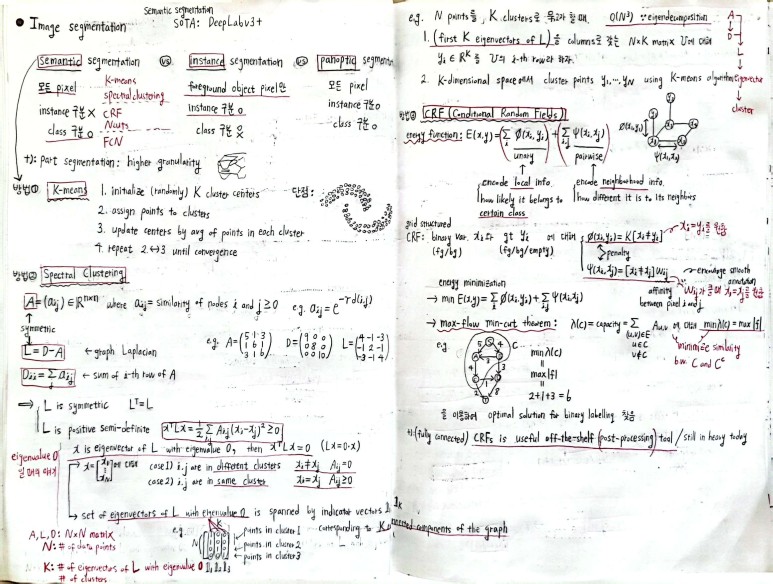 Semantic segmentation
● Image segmentation SOTA: DeepLabv3+
semantic segmentation vs instance segmentation vs panoptic segmentation
모든 pixel
instance 구분 X
class 구분 o
K-means
spectral clustering
CRF
Ncuts
FCN
foreground object pixel만
instance 구분 o
class 구분 X
모든 pixel
instance 구분 o
class 구분 o
+): part segmentation: higher granularity
방법① K-means
1. initialize (randomly) K cluster centers
2. assign points to clusters
3. update centers by avg of points in each cluster
4. repeat 2↔3 until convergence
단점:
방법② Spectral Clustering
A = (aij) ∈ R^{n×n} where aij = similarity of nodes i and j ≥ 0 e.g. aij = e^{-r d(i,j)}
symmetric
L = D-A ← graph Laplacian
e.g. A = (5 1 3 / 1 6 1 / 3 1 6) D = (9 0 0 / 0 8 0 / 0 0 10) L = (4 -1 -3 / -1 2 -1 / -3 -1 4)
Dii = Σj aij ← sum of i-th row of A
⇒ L is symmetric L^T = L
L is positive semi-definite x^T L x = 1/2 Σ Aij (xi-xj)² ≥ 0
x is eigenvector of L with eigenvalue 0, then x^T L x = 0 (Lx = 0·x)
eigenvalue 0
case1) i, j are in different clusters xi ≠ xj Aij = 0
case2) i, j are in same cluster xi = xj Aij ≥ 0
→ set of eigenvectors of L with eigenvalue 0 is spanned by indicator vectors 1, 1k
corresponding to K connected components of the graph
e.g. K
N
points in cluster 1
points in cluster 2
points in cluster 3
A, L, D: N×N matrix
N: # of data points
K: # of eigenvectors of L with eigenvalue 0
# of clusters
e.g. N points를, K clusters로 묶고자 할 때. O(N³) ∵ eigendecomposition
1. (first K eigenvectors of L)을 columns로 갖는 N×K matrix U에 대해
yi ∈ R^K 를 U의 i-th row라 하자.
2. K-dimensional space에서 cluster points y1, ... yN using K-means algorithm
A
D
L
eigenvector
cluster
방법③ CRF (Conditional Random Fields)
energy function: E(x,y) = Σi φ(xi, yi) + Σij ψ(xi, xj)
unary pairwise
φ(xi,yi)
ψ(xi,xj)
encode local info.
how likely it belongs to
certain class
encode neighborhood info.
how different it is to its neighbors
grid structured
CRF: binary var. xi 와 gt yi 에 대해
(fg/bg) (fg/bg/empty)
φ(xi,yi) = K[xi≠yi]
xi = yi를
penalty
ψ(xi,xj) = [xi≠xj] wij
encourage smooth
annotation
affinity
between pixel i and j
energy minimization
→ min E(x,y) = Σi φ(xi,yi) + Σij ψ(xi,xj)
→ max-flow min-cut theorem: λ(c) = capacity = Σ Au,v 에 대해 min λ(c) = max|f|
(u,v)∈E
u∈C
v∉C
minimize similarity
b.w. C and C^c
e.g.
min λ(c)
=
max|f|
=
2+1+3 = 6
을 이용하여 optimal solution for binary labelling 찾음
+) (fully connected) CRFs is useful off-the-shelf (post-processing) tool / still in heavy today